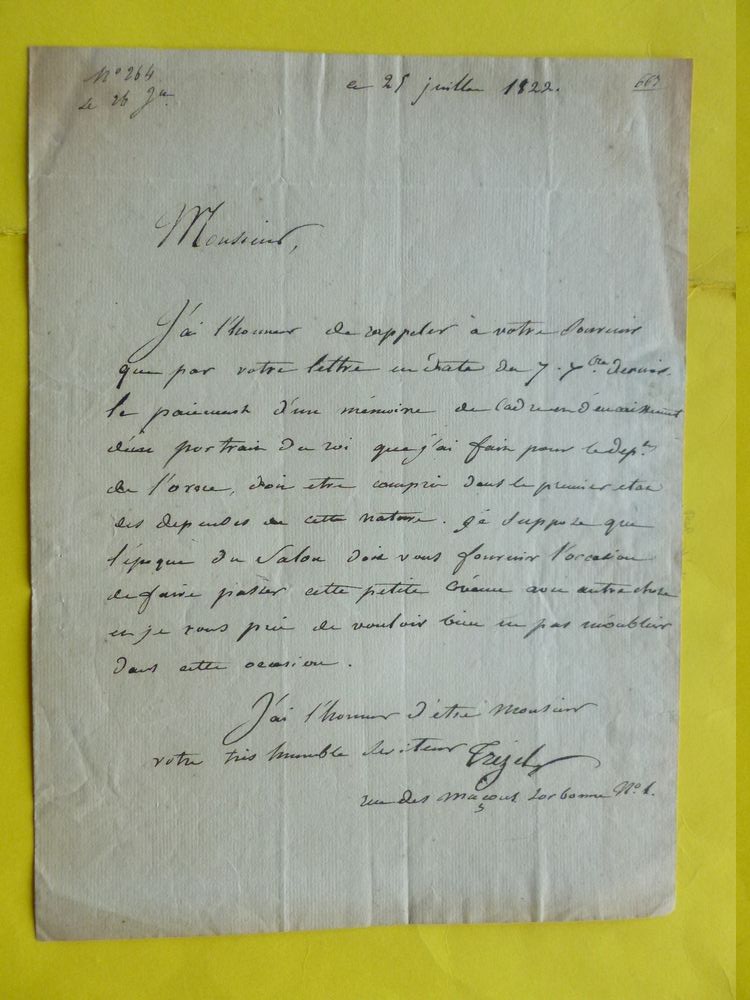 N° 264
Le 26 Jet
ce 25 juillet 1822.
663
Monsieur,
J'ai l'honneur de rappeler à votre Souvenir
que par votre lettre en date du 7. 7bre. dernier
le paiement d'un mémoire de Cadre et d'encaissement
d'un portrait du roi que j'ai fait pour le dept.
de l'orne, doit etre compris dans le premier etat
des depenses de cette nature. je suppose que
l'époque du Salon doit vous fournir l'occasion
de faire passer cette petite Créance avec autre chose
et je vous prie de vouloir bien ne pas m'oublier
dans cette occasion.
J'ai l'honneur d'être Monsieur
votre très humble serviteur Trézel
rue des maçons Sorbonne N° 1.